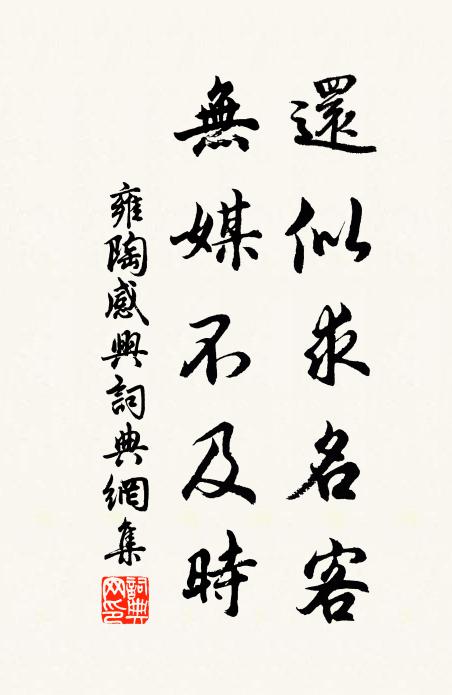 還似求名客
無媒不及時
雍陶感興詞典網集
詞典
网印